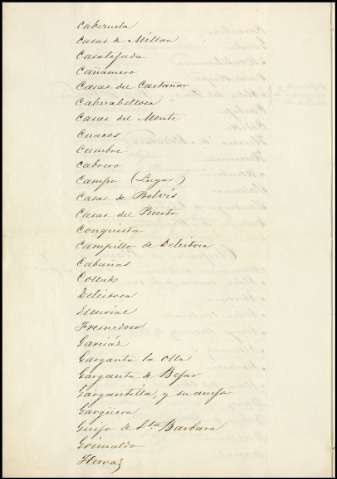 Caberuela
Casas de Millan
Casatejada
Cañamero
Casas del Castañar
Cabezabellosa
Casas del Monte
Cuacos
Cumbre
Cabrero
Campo (Lugar)
Casas de Belvis
Casas del Puerto
Conquista
Campillo de Deleitosa
Cabañas
Collado
Deleitosa
Fresnedoso
Garciaz
Garganta la olla
Garganta de Bejar
Gargantilla, y su anejo
Gargüera
Guijo de Sta Barbara
Grimaldo
Hervaz